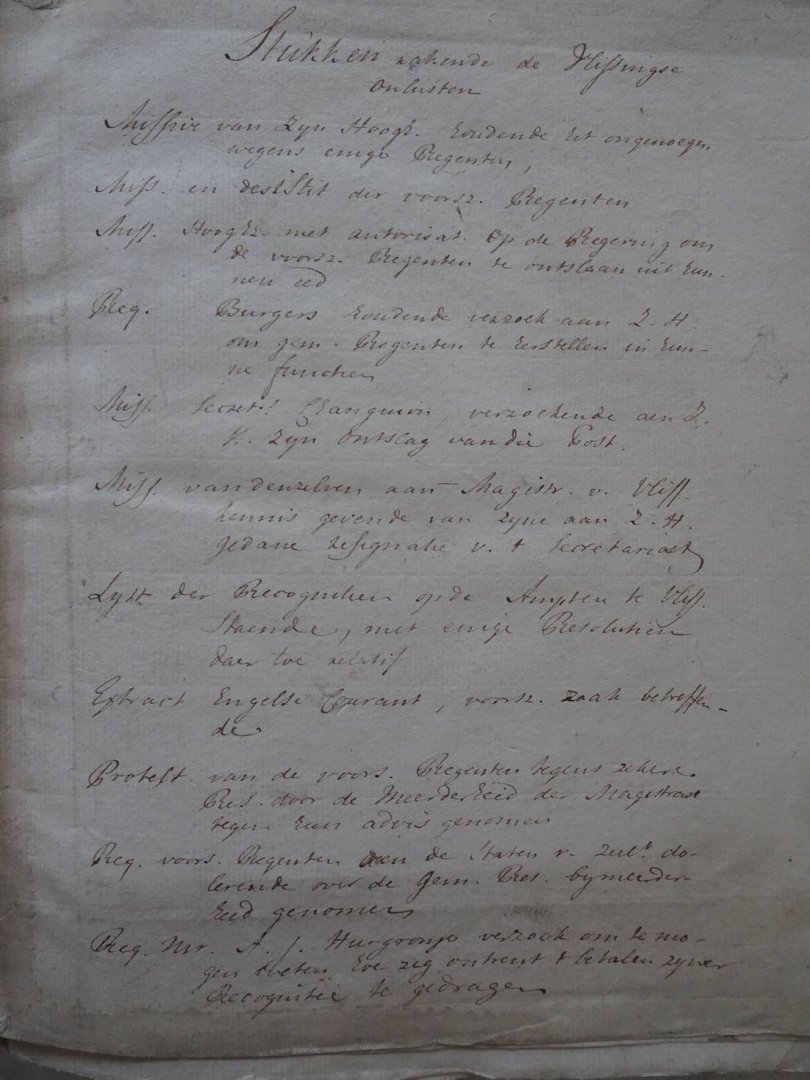 Stukken rakende de Vlissingse
onlusten
Missive van Zyn Hoogh. houdende het ongenoegen
wegens einige Regenten,
Miss. en desistit der voorsz. Regenten
Miss. Hooghz. met autorisat. op de Regering om
de voorsz. Regenten te ontslaan uit hun-
nen eed
Req. Burgers houdende verzoek aan Z. H.
om gem. Regenten te herstellen in hun-
ne functien
Miss. Secret.s Changuion, verzoekende aen Z.
H. zyn ontslag van die Post.
Miss. van denzelven aan Magistr. v. Vliss.
kennis gevende van zyne aan Z. H.
gedane resignatie v. t secretariaet
Lyst der Recognitien op de Ampten te Vliss.
staende, met einige Resolutien
daer toe relatif
Extract Engelse Courant, voorsz. zaak betreffen-
de
Protest van de voors. Regenten tegens zekere
Res. door de Meerderheid der Magistraat
tegen hun advis genomen
Req. voors. Regenten aen de Staten v. Zeel.t do-
lerende over de gem. Res. by meerder-
heid genomen
Req. Mr. A. J. Hurgronje verzoek om te mo-
gen weten hoe zig ontrent t betalen zyner
Recognitie te gedragen